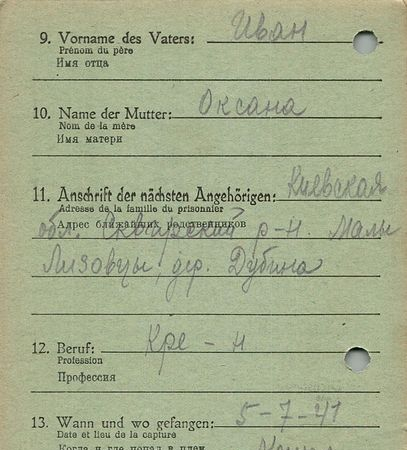 9. Vorname des Vaters: Иван
Prénom du père
Имя отца
10. Name der Mutter: Оксана
Nom de la mère
Имя матери
11. Anschrift der nächsten Angehörigen: Киевская
Adresse de la famille du prisonnier
Адрес ближайших родственников
обл. Сквирский р-н. Малы
Лизовцы, дер. Дубина
12. Beruf: Кре-н
Profession
Профессия
13. Wann und wo gefangen: 5-7-41
Date et lieu de la capture
Когда и где попал в плен